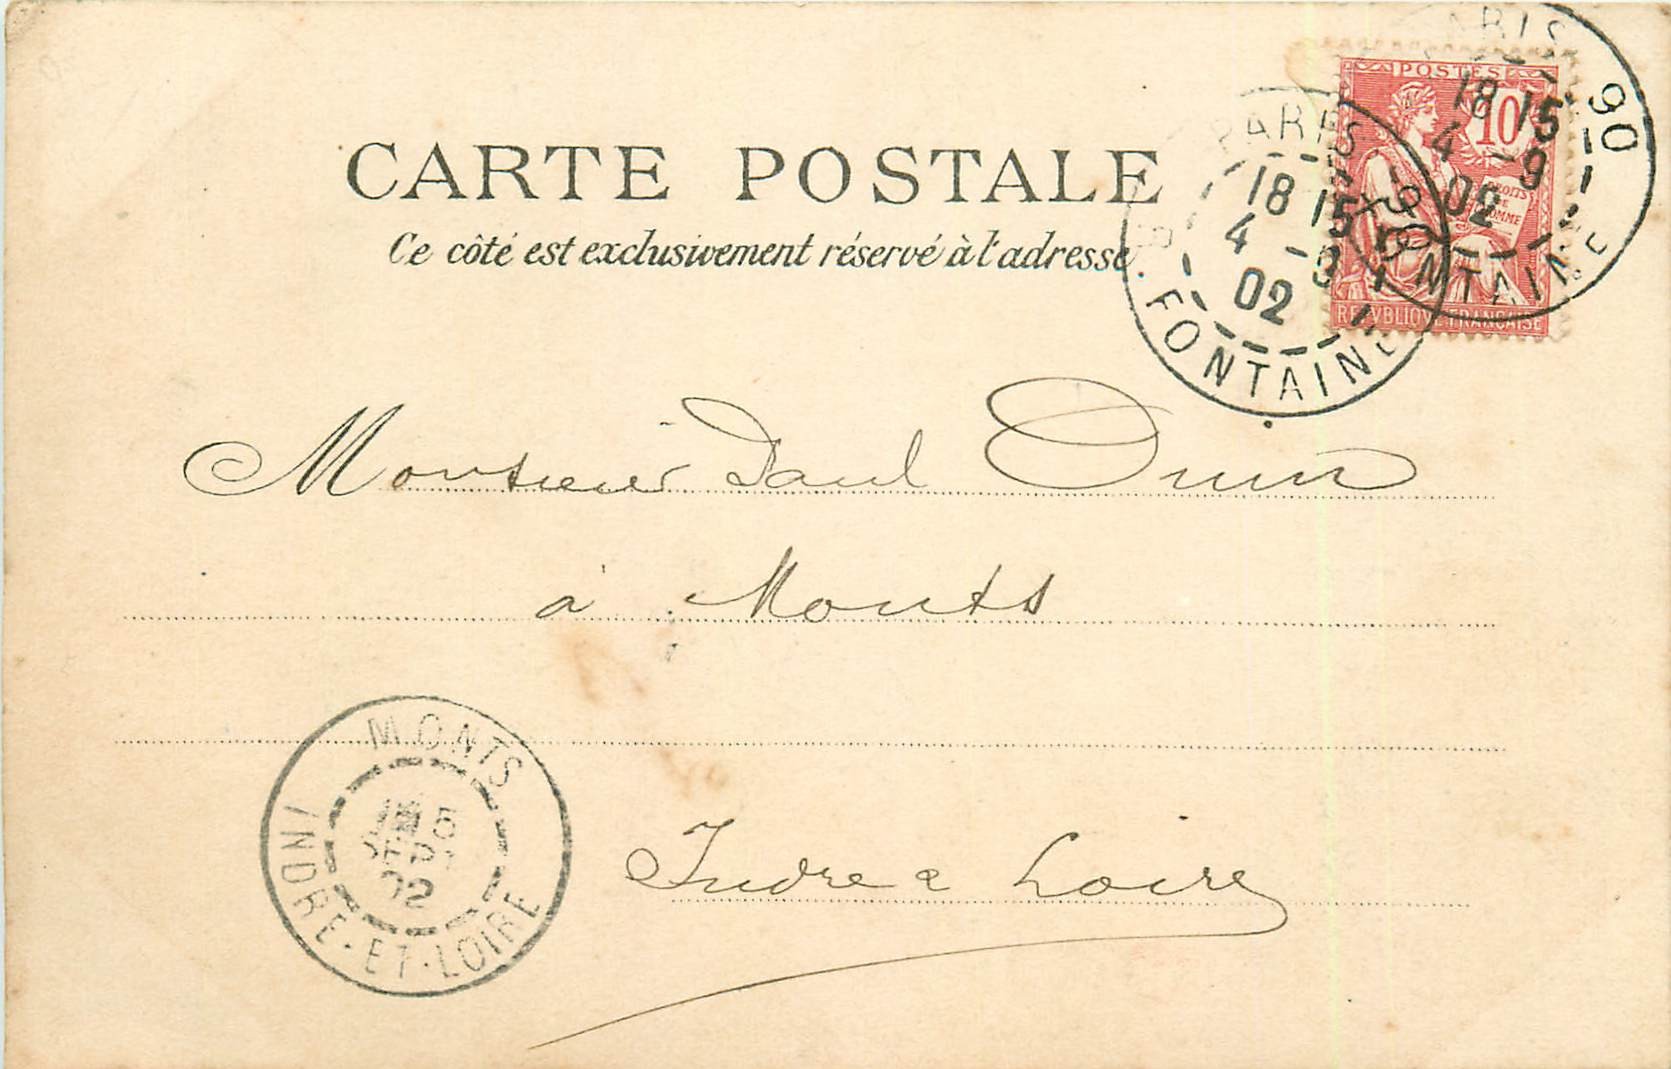 CARTE POSTALE
Ce côté est exclusivement réservé à l'adresse.
POSTES
10
DROITS DE L'HOMME
REPVBLIQVE FRANCAISE
PARIS 90
18 15
4 - 9
02
FONTAINE
PARIS 90
18 15
4 - 9
02
R. FONTAINE
Monsieur Paul
à Monts
Indre & Loire
MONTS
5
SEPT
02
INDRE-ET-LOIRE